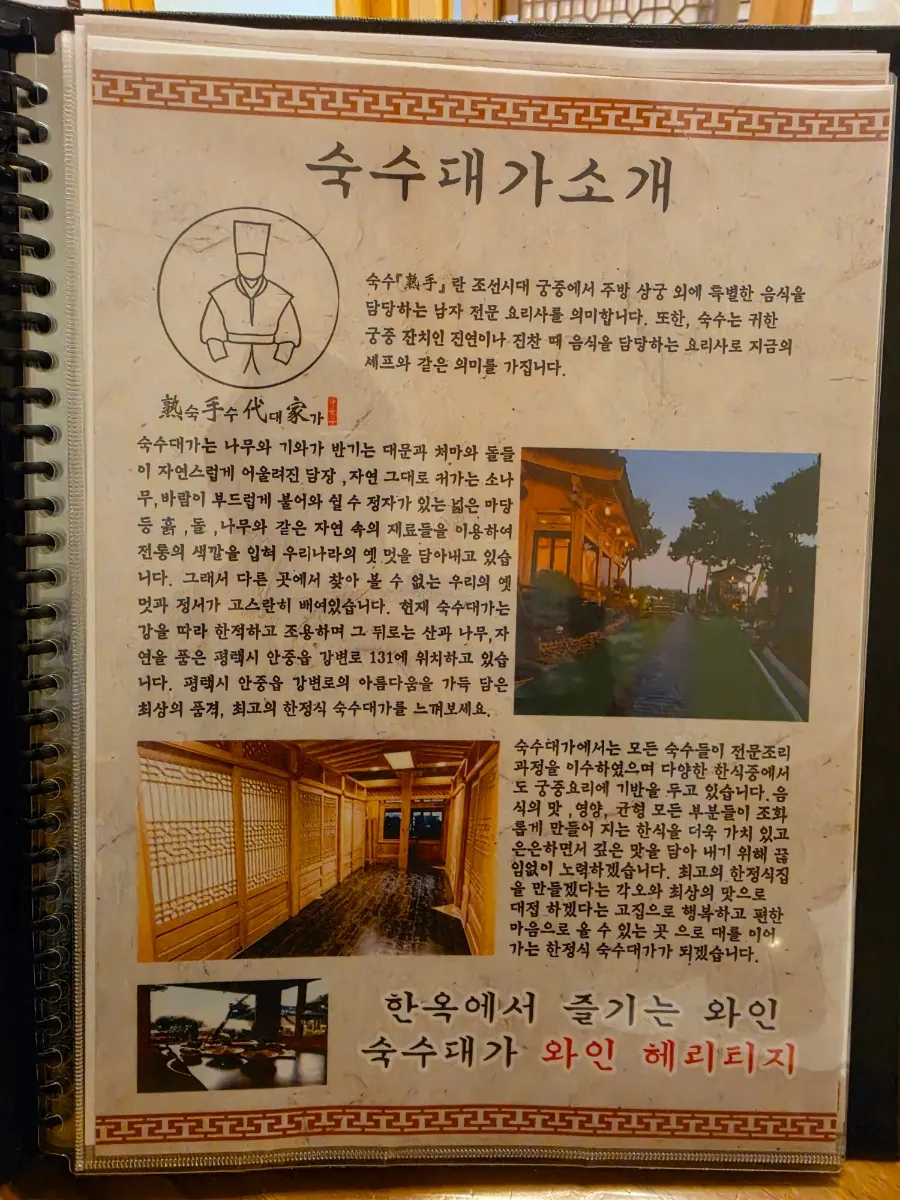 숙수대가소개
숙수『熟手』란 조선시대 궁중에서 주방 상궁 외에 특별한 음식을
담당하는 남자 전문 요리사를 의미합니다. 또한, 숙수는 귀한
궁중 잔치인 진연이나 진찬 때 음식을 담당하는 요리사로 지금의
셰프와 같은 의미를 가집니다.
熟숙手수代대家가
숙수대가는 나무와 기와가 반기는 대문과 처마와 돌들
이 자연스럽게 어울려진 담장 ,자연 그대로 커가는 소나
무,바람이 부드럽게 불어와 쉴 수 정자가 있는 넓은 마당
등 흙 ,돌 ,나무와 같은 자연 속의 재료들을 이용하여
전통의 색깔을 입혀 우리나라의 옛 멋을 담아내고 있습
니다. 그래서 다른 곳에서 찾아 볼 수 없는 우리의 옛
멋과 정서가 고스란히 배여있습니다. 현재 숙수대가는
강을 따라 한적하고 조용하며 그 뒤로는 산과 나무,자
연을 품은 평택시 안중읍 강변로 131에 위치하고 있습
니다. 평택시 안중읍 강변로의 아름다움을 가득 담은
최상의 품격, 최고의 한정식 숙수대가를 느껴보세요.
숙수대가에서는 모든 숙수들이 전문조리
과정을 이수하였으며 다양한 한식중에서
도 궁중요리에 기반을 두고 있습니다.음
식의 맛 ,영양, 균형 모든 부분들이 조화
롭게 만들어 지는 한식을 더욱 가치 있고
은은하면서 깊은 맛을 담아 내기 위해 끊
임없이 노력하겠습니다. 최고의 한정식집
을 만들겠다는 각오와 최상의 맛으로
대접 하겠다는 고집으로 행복하고 편한
마음으로 올 수 있는 곳 으로 대를 이어
가는 한정식 숙수대가가 되겠습니다.
한옥에서 즐기는 와인
숙수대가 와인 헤리티지